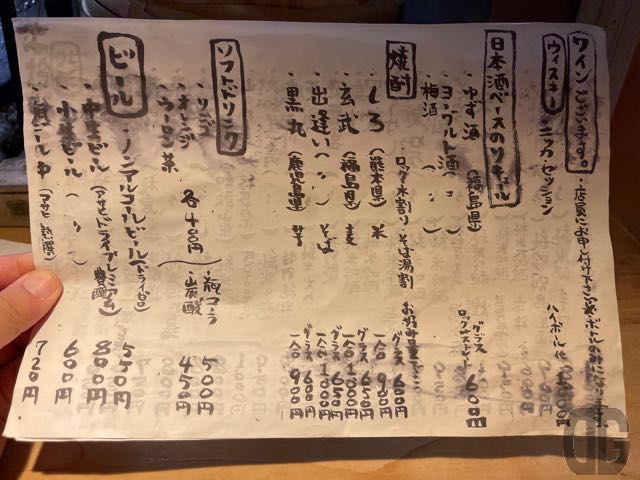 ワインございます。・店員にお申し付け下さいませ・ボトルのみになります
ウィスキー・ニッカ セッション ハイボール他
日本酒ベースのリキュール
・ゆず酒 (福島県) グラス
・ヨーグルト酒 (〃) ロックorストレート 600円
・梅酒 (〃)
焼酎 ロック・水割り・そば湯割 お好み量でどうぞ
・しろ (熊本県) 米 グラス 600円 一合 900円
・玄武 (福島県) 麦 グラス 650円 一合 1000円
・出逢い (〃) そば グラス 650円 一合 1000円
・黒丸 (鹿児島県) 芋 グラス 600円 一合 900円
ソフトドリンク
・リンゴ
・オレンジ 各400円 ・瓶コーラ 500円
・ウーロン茶 ・炭酸 450円
ビール
・ノンアルコールビール(ドライゼロ) 550円
・中生ビール (アサヒドライプレミアム)豊醸 800円
・小生ビール (〃) 600円
・瓶ビール中 (アサヒ 熟撰) 720円